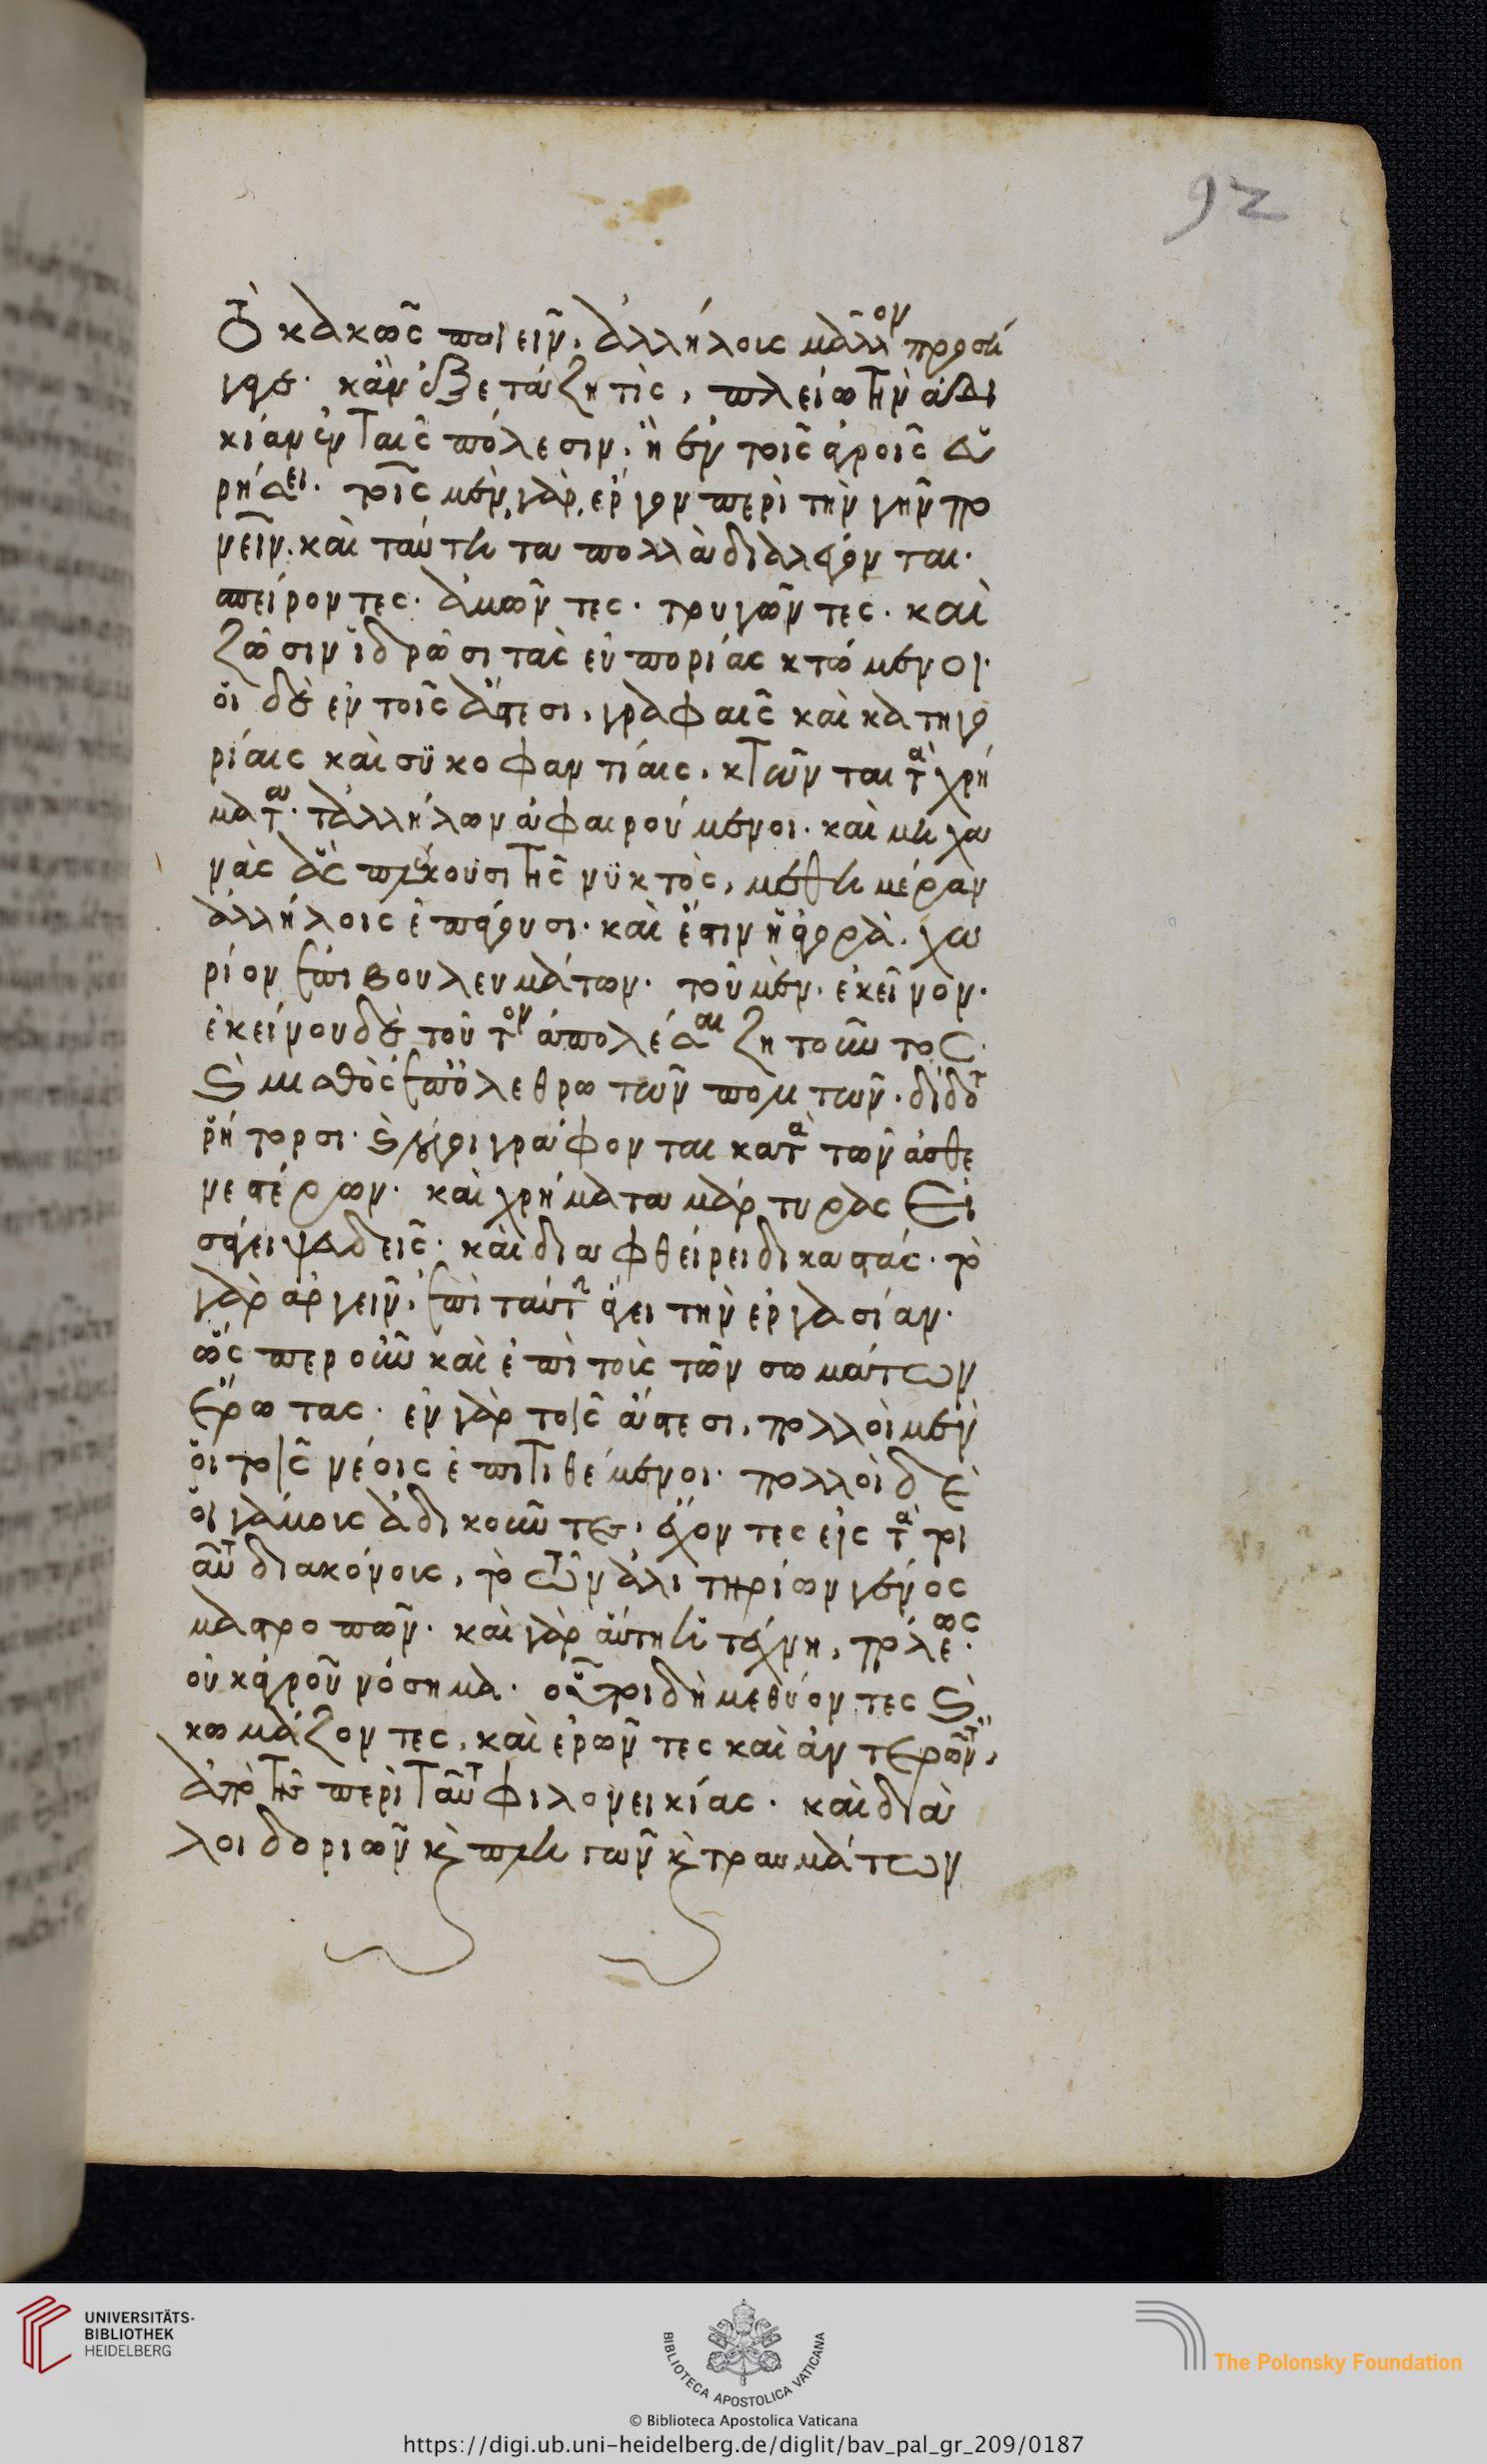 92
τὸ κακῶς ποιεῖν. ἀλλήλοις μᾶλλον προσή
κἂν ἐξετάζη τὶς, πλείω τὴν ἀδι
κίαν ἐν ταῖς πόλεσιν. ἢ ἐν τοῖς ἀγροῖς εὑ
ρήσει. τοῖς μὲν, γὰρ, ἔργον περὶ τὴν γῆν πο
νεῖν. καὶ ταύτη τὰ πολλὰ διαλέγονται.
σπείροντες. ἀμῶντες. τρυγῶντες. καὶ
ζῶσιν ἱδρῶσι τὰς εὐπορίας κτώμενοι.
οἱ δὲ ἐν τοῖς ἄστεσι, γραφαῖς καὶ κατηγο
ρίαις καὶ συκοφαντίαις. κτῶνται τὰ χρή
ματα. τἀλλήλων ἀφαιρούμενοι. καὶ μηχα
νὰς ἃς πλέκουσι τῆς νυκτὸς, μεθημέραν
ἀλλήλοις ἐπάγουσι. καὶ ἔστιν ἡ ἀγορὰ. χω
ρίον ἐπιβουλευμάτων. τοῦ μὲν. ἐκεῖνον.
ἐκείνου δὲ τοῦτον ἀπολέσαι ζητοῦντος.
καὶ μισθὸς ἐπὀλέθρω τῶν πολιτῶν. δίδοται
ῥήτορσι. καὶ λόγοι γράφονται κατὰ τῶν ἀσθε
νεστέρων. καὶ χρήματα μάρτυρας εἰ
σάγει ψευδεῖς. καὶ διαφθείρει δικαστάς. τὸ
γὰρ ἀργεῖν. ἐπὶ ταύτην ἄγει τὴν ἐργασίαν.
ὥσπερ οὖν καὶ ἐπὶ τοὺς τῶν σωμάτων
ἔρωτας. ἐν γὰρ τοῖς ἄστεσι, πολλοὶ μὲν
οἱ τοῖς νέοις ἐπιτιθέμενοι. πολλοὶ δὲ
οἱ γάμοις ἀδικοῦντες. ἔχοντες εἰς τὰ τοι
αῦτα διακόνοις, τὸ τῶν ἀλιτηρίων γένος
μαστροπῶν. καὶ γὰρ αὕτη ἡ τέχνη, πόλεως.
οὐκ ἀγροῦ νόσημα. οὗτοι δὴ μεθύοντες καὶ
κωμάζοντες, καὶ ἐρῶντες καὶ ἀντερῶντες,
ἀπὸ τῆς περὶ ταῦτα φιλονεικίας. καὶ διὰ
λοιδοριῶν καὶ πληγῶν καὶ τραυμάτων
UNIVERSITÄTS-
BIBLIOTHEK
HEIDELBERG
BIBLIOTECA APOSTOLICA VATICANA
The Polonsky Foundation
© Biblioteca Apostolica Vaticana
https://digi.ub.uni-heidelberg.de/diglit/bav_pal_gr_209/0187